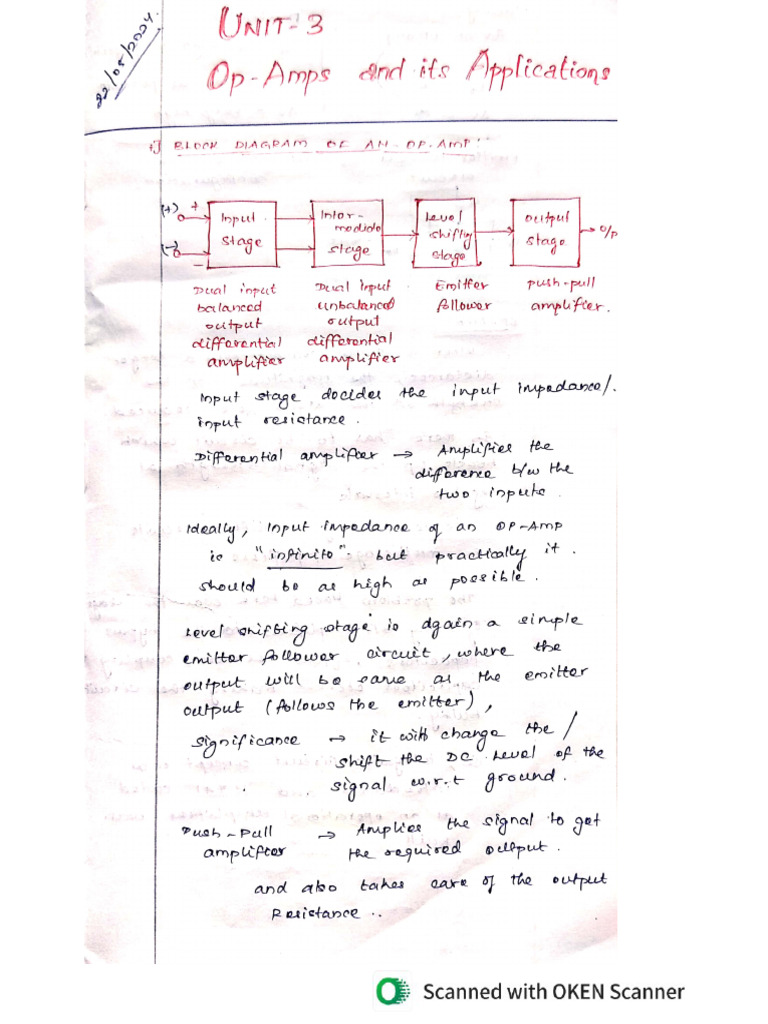 22/05/2024.
UNIT-3
Op-Amps and its Applications
1] BLOCK DIAGRAM OF AN OP-AMP:
(+) +
(-) -
Input stage
Inter-mediate stage
Level shifting stage
output stage
O/P
Dual input balanced output differential amplifier
Dual input unbalanced output differential amplifier
Emitter follower
push-pull amplifier.
Input stage decides the input impedance/.
input resistance.
Differential amplifier → Amplifies the
difference b/w the
two inputs.
Ideally, Input impedance of an OP-AMP
is "infinite". but practically it.
should be as high as possible.
Level shifting stage is again a simple
emitter follower circuit, where the
output will be same as the emitter
output (follows the emitter),
significance → it will change the /
shift the DC Level of the
signal w.r.t ground.
Push-Pull → Amplies the signal to get
amplifier the required output.
and also takes care of the output
Resistance..
Scanned with OKEN Scanner